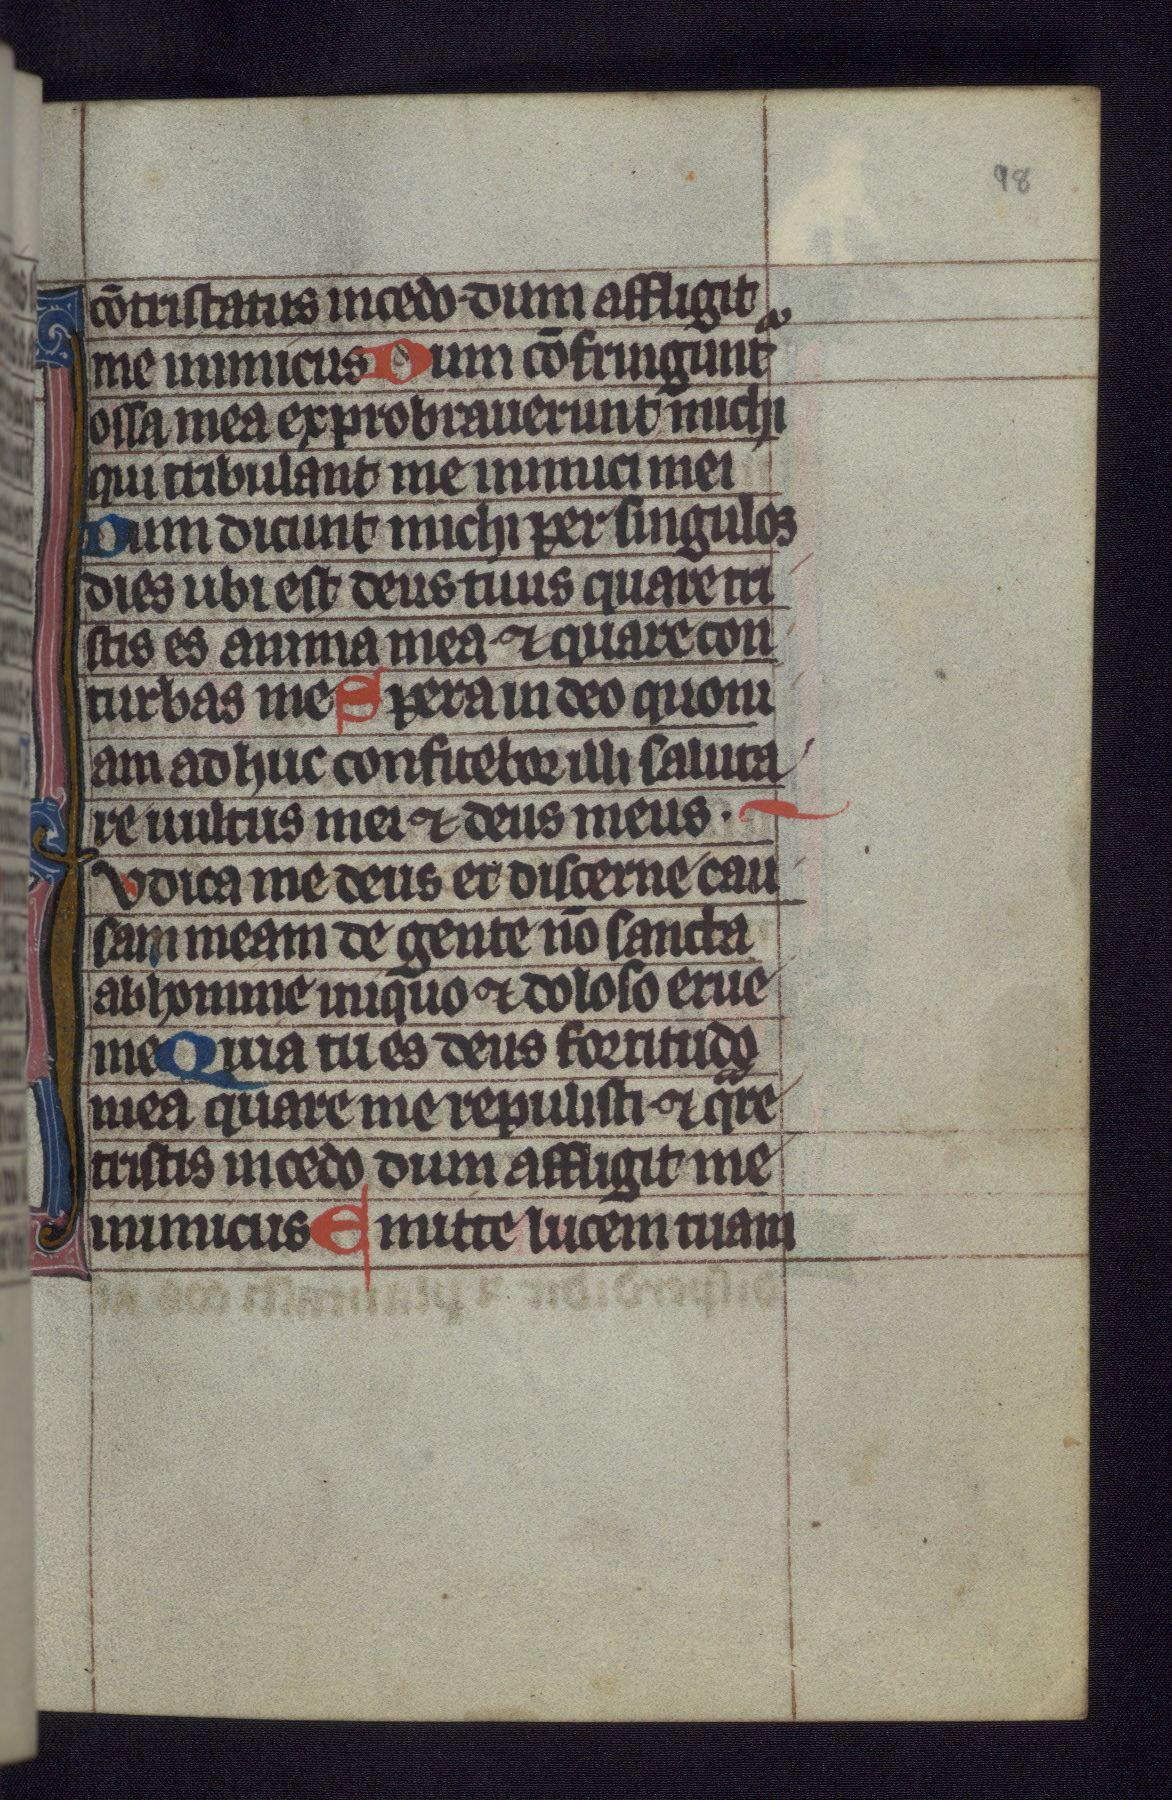 98
cōtristatus incedo dum affligit
me inimicus Dum cōfringunt᷑
ossa mea exprobrauerunt michi
qui tribulant me inimici mei
Dum dicunt michi per singulos
dies ubi est deus tuus quare tri
stis es anima mea ⁊ quare con
turbas me Spera in deo quoni
am adhuc confitebor illi saluta
re uultus mei ⁊ deus meus ·
Iudica me deus et discerne cau
sam meam de gente nō sancta
ab homine iniquo ⁊ doloso erue
me Quia tu es deus fortitudo
mea quare me repulisti ⁊ qᷓre
tristis incedo dum affligit me
inimicus Emitte lucem tuam